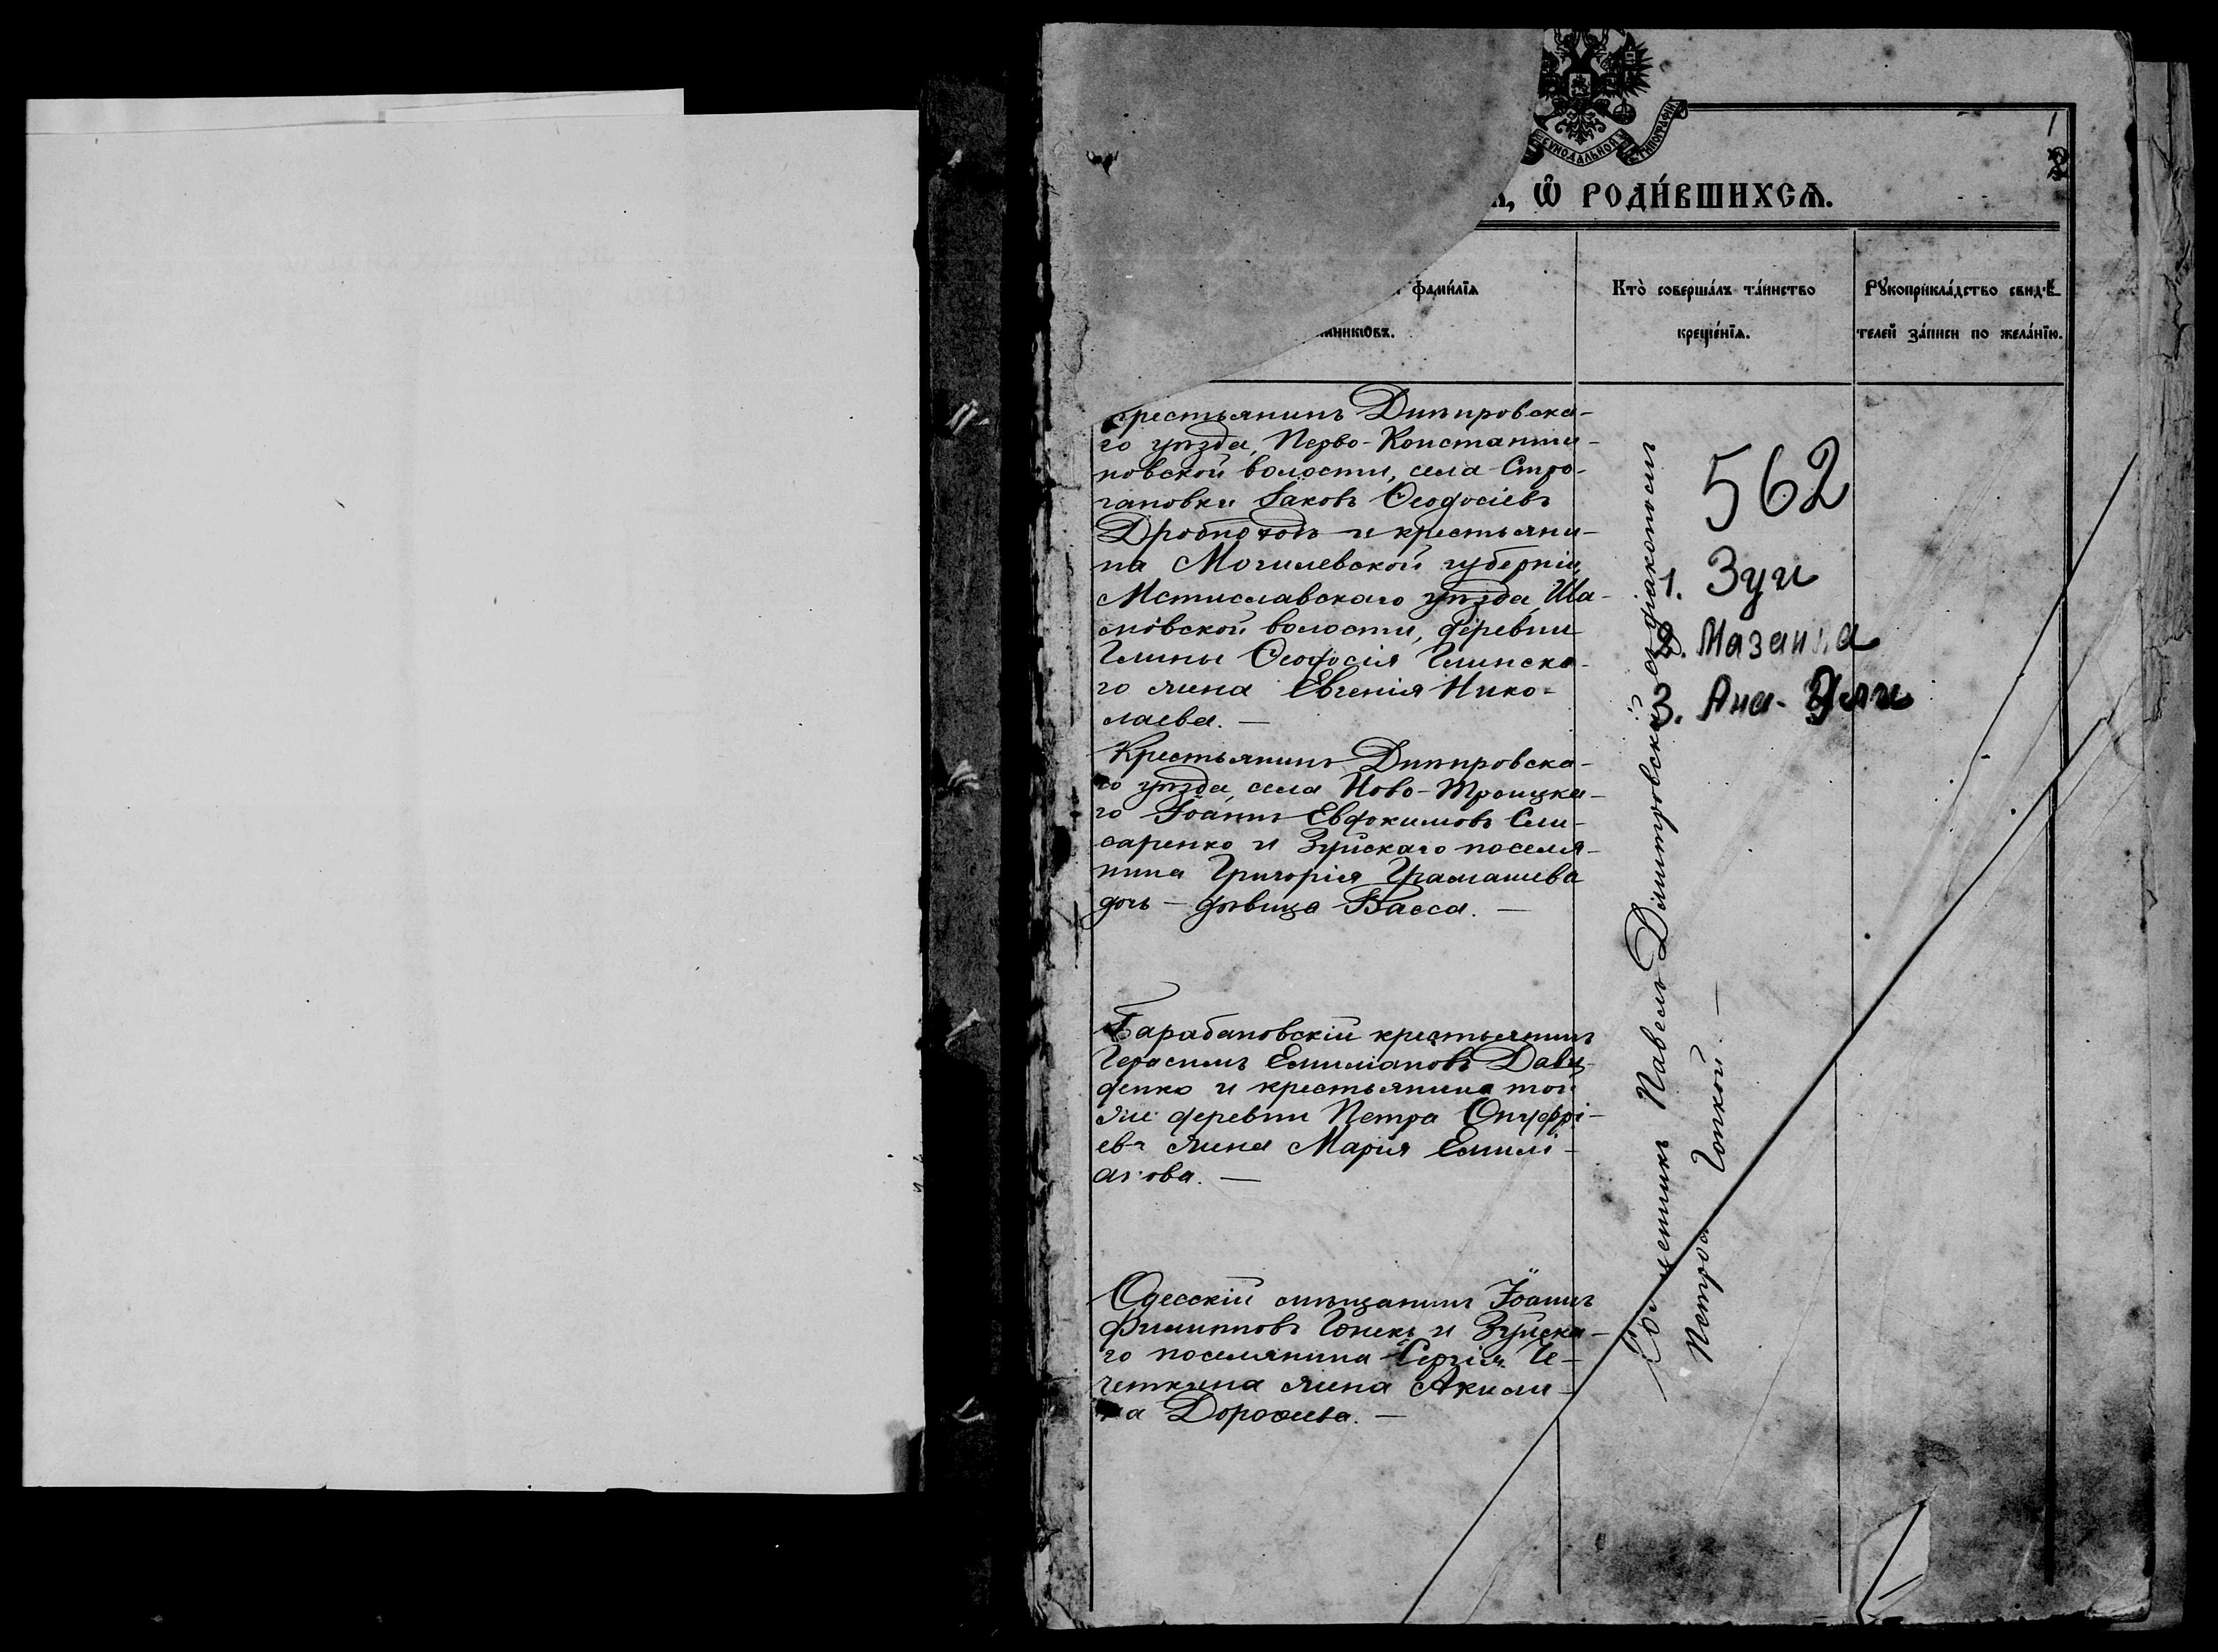 СѴНОДАЛЬНОЙ ТИПОГРАФІИ
1
2
, Ѡ РОДИ́ВШИХСѦ.
фами́лїѧ
Кто̀ соверша́лъ та́инство
Рꙋкоприкла́дство свидѣ-
никѡвъ.
креще́нїѧ.
телей за́писи по жела́нїю.
Крестьянинъ Днѣпровска-
го уѣзда, Перво-Константи-
новской волости, села Стро-
гановки Іаковъ Ѳеодосіевъ
и крестьяни-
на Могилевской губерніи,
Мстиславскаго уѣзда, Ша-
мовской волости, деревни
Глины Ѳеодосія Глинска-
го жена Евгенія Нико-
лаева. —
Крестьянинъ Днѣпровска-
го уѣзда, села Ново-Троицка-
го Іоаннъ Евдокимовъ Сли-
саренко и Зуйскаго поселя-
нина Григорія Грамашева
дочь — дѣвица Васса. —
Барабановскій крестьянинъ
Герасимъ Емиліановъ Дави-
денко и крестьянина той
же деревни Петра Онуфрі-
ева жена Марія Емилі-
анова. —
Одесскій мѣщанинъ Іоаннъ
Филипповъ Гонекъ и Зуйска-
го поселянина Сергія Че-
четкина жена Акили-
на Дороѳеева. —
Павелъ Димитровскій съ діакономъ
Петромъ Гопкой. —
562
1. Зуи
2. Мазанка
3. Ана-Эли